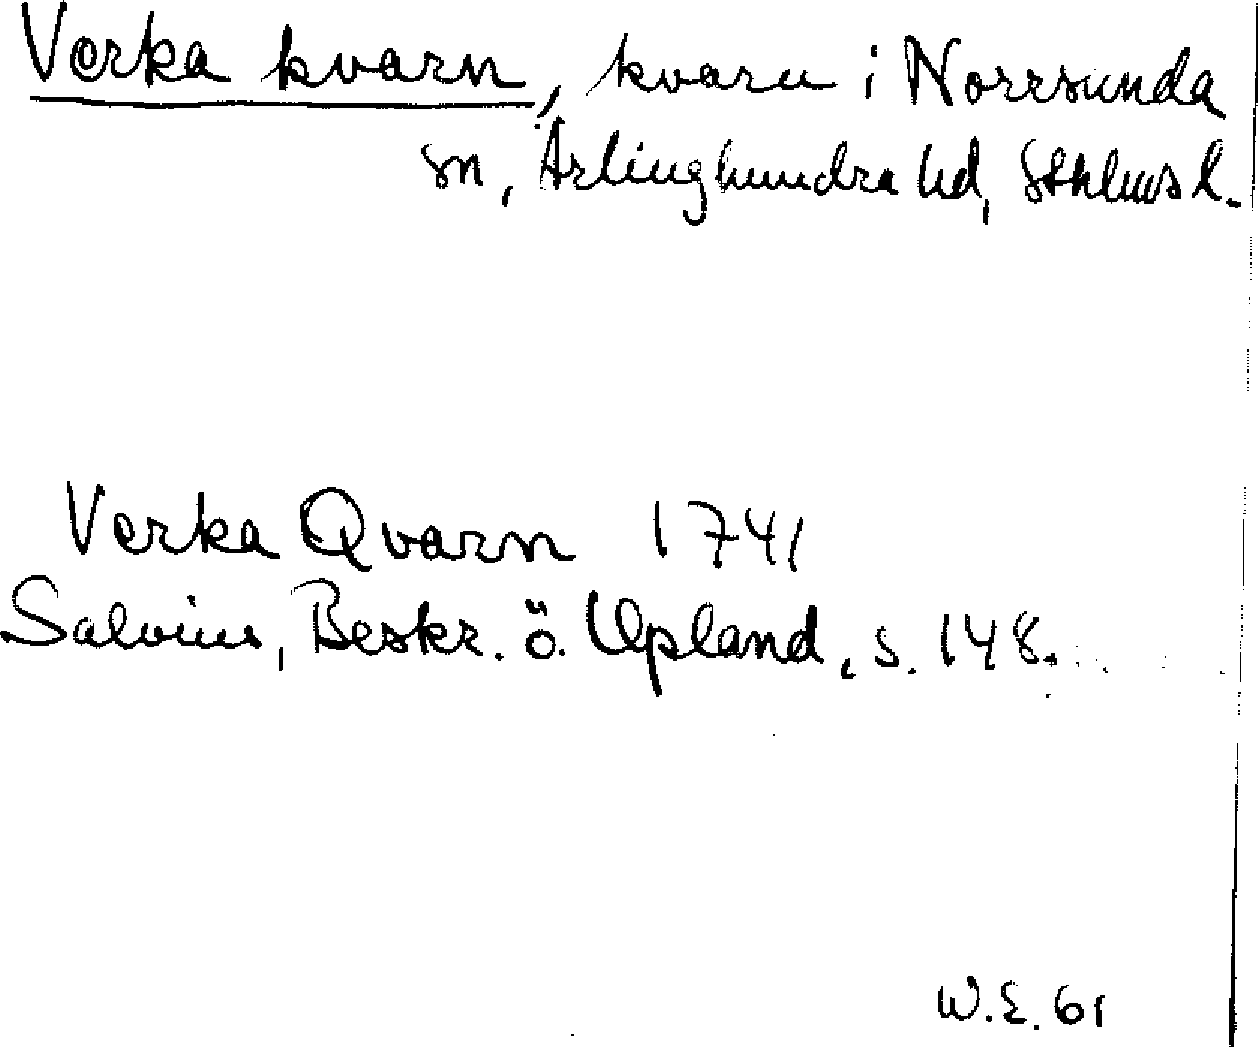 Verka kvarn, kvarn i Norrsunda
sn, Ärlinghundra hd, Sthlms l.
Verka Qvarn 1741
Salvius, Beskr. ö. Upland, s. 148.
W.E. 61